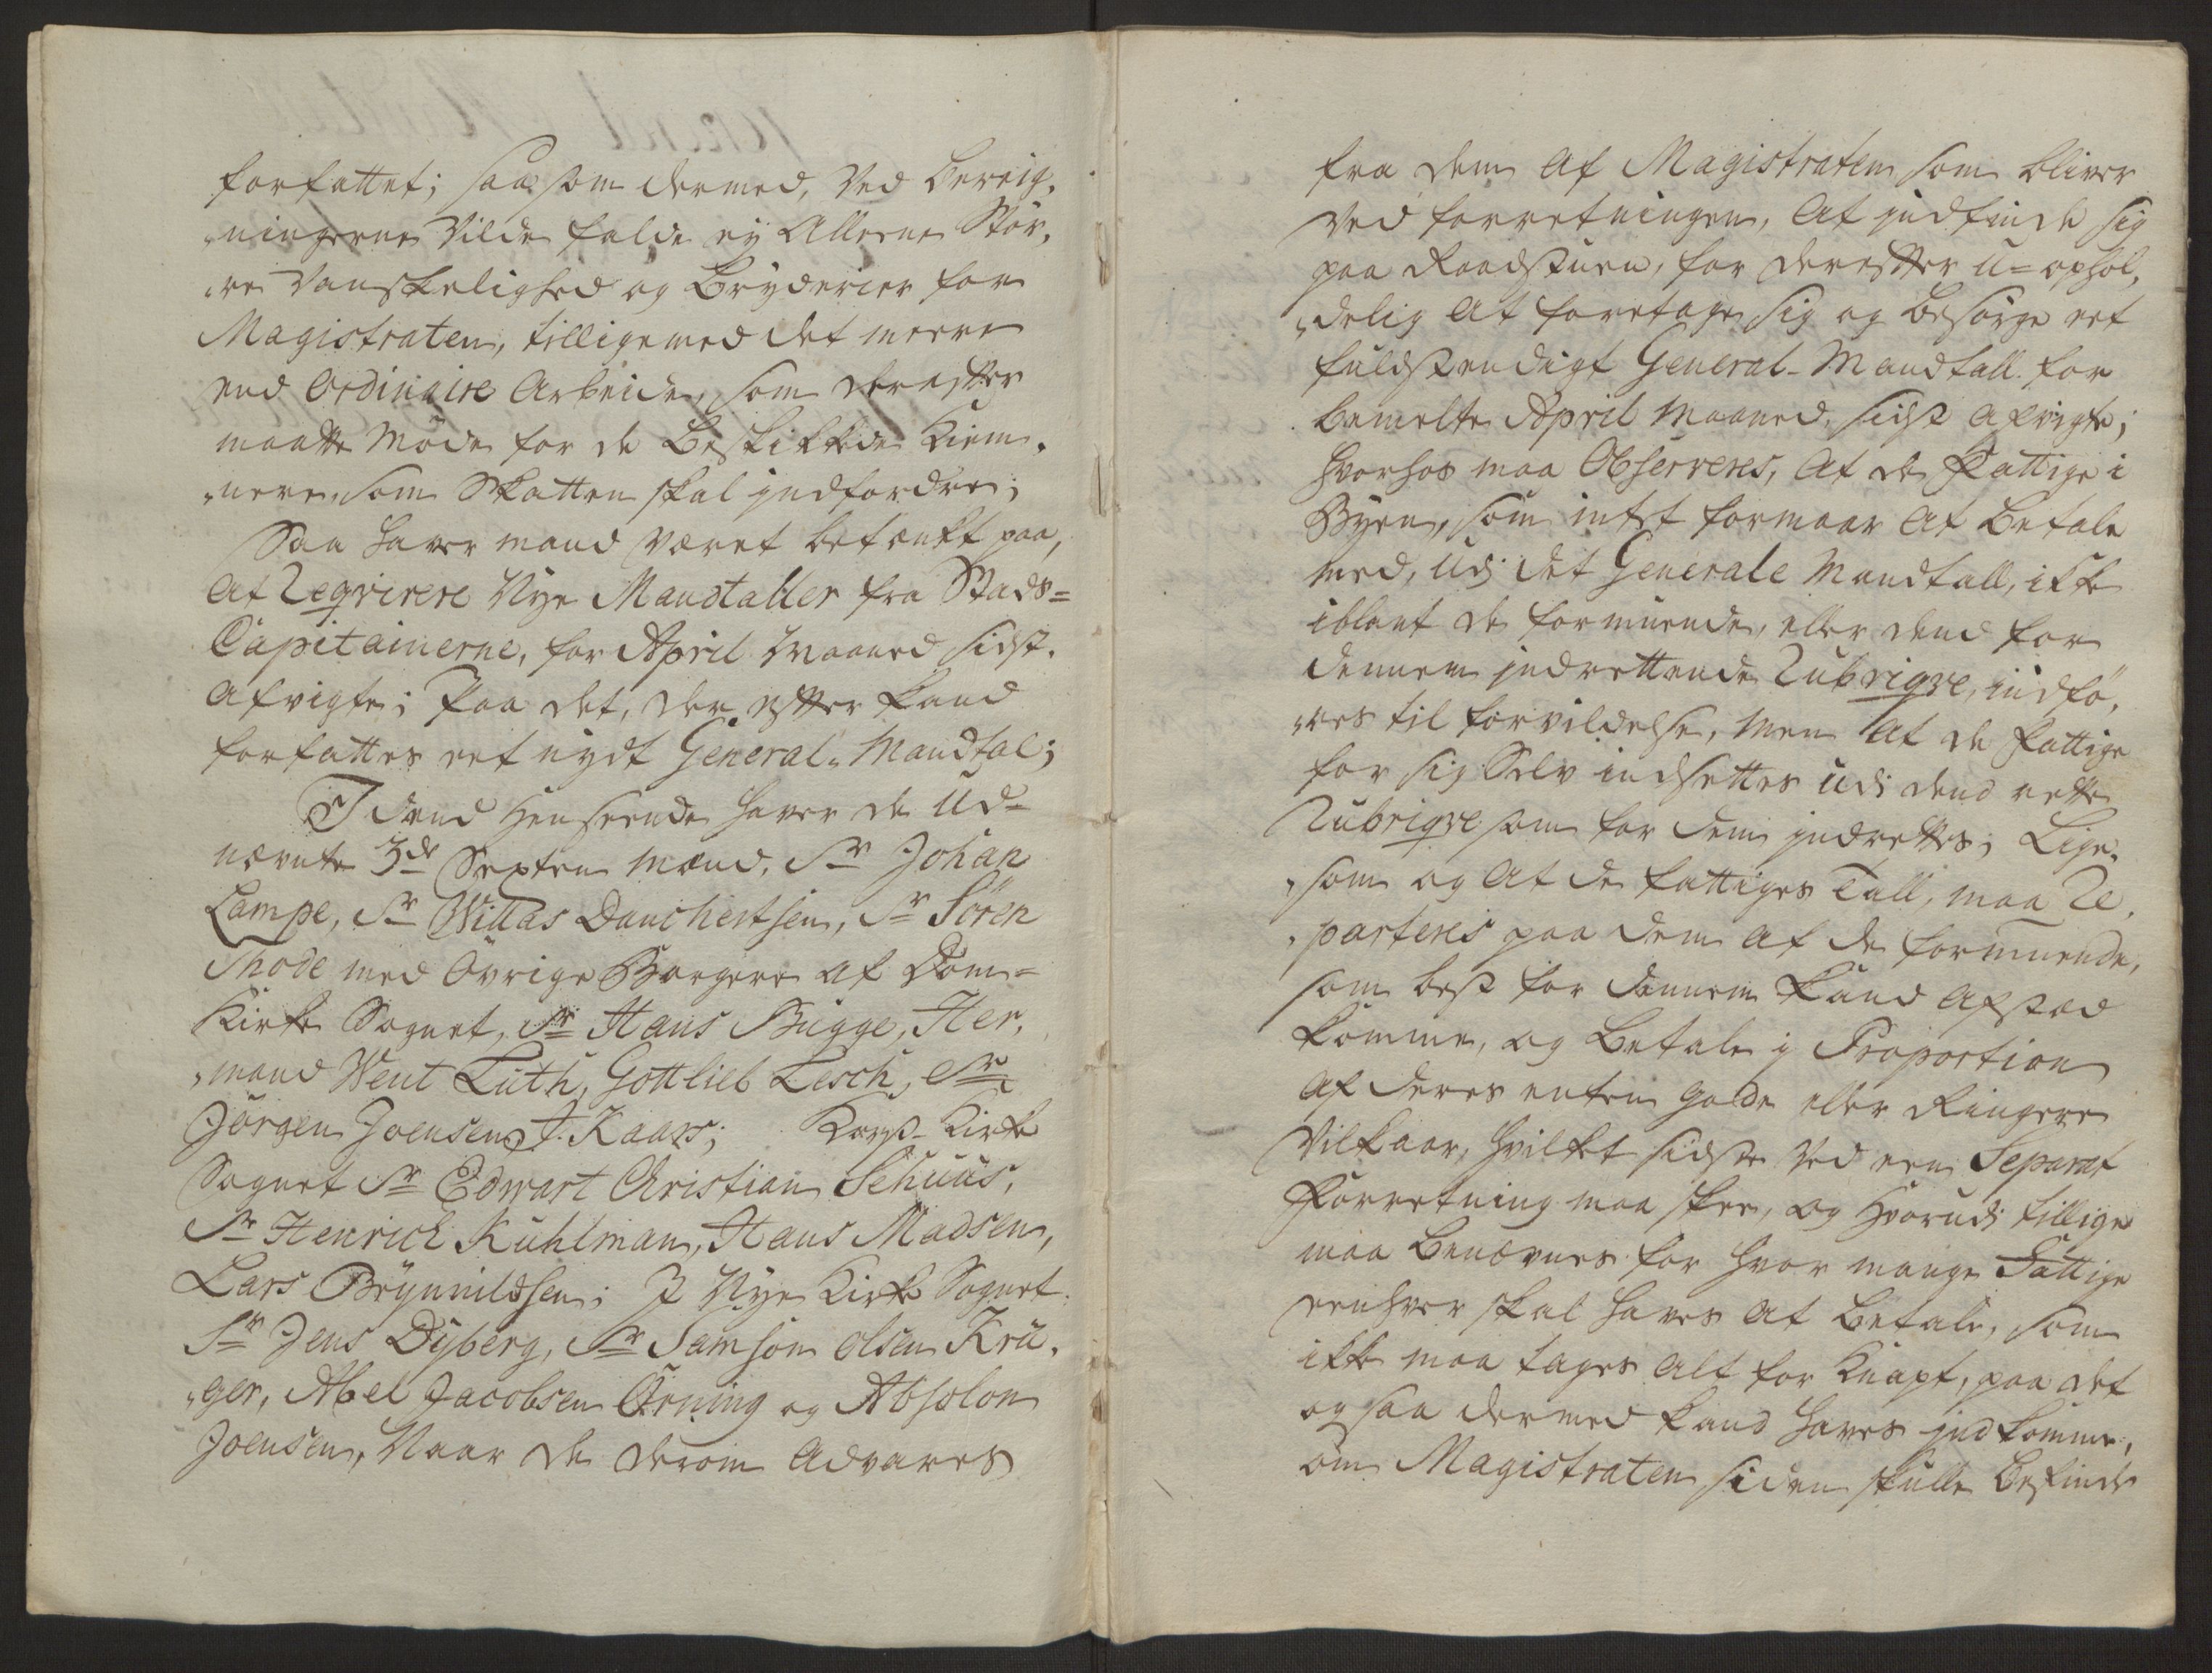 forfattet; saasom dermed, Ved bereig,
„ningerne Vilde falde ej Alleene Stör,
„re Vanskelighed og Bryderier for
Magistraten, tilligemed det meere
end Ordinaire Arbeide, som derefter
maatte Möde for de Beskikkede Kiem,
„nere, som Skatten skal jndfordre;
Saa haver mand været betænkt paa,
At Reqvirere Nye Mandtaller fra Stads=
Capitainerne, for April Maaned sidst.
Afvigte; Paa det, der efter kand
forfattes eet nydt General„ Mandtal;
I dend Henseende haver de Ud=
nævnte 3de Sexten Mænd, Sr Johan
Lampe, Sr Willas Danchertsen, Sr Sören
Thode med Övrige Borgere af Dom=
Kirke Sognet, Sr Hans Bugge, Her,
„mand Went Lüth, Gottlieb Lesch, Sr
Jörgen Joensen J. Kaars; Kors-Kirke
Sognet Sr Edwart Christian Schuus,
Sr Henrich Kuhlman, Hans Madsen,
Lars Brynnildsen; I Nye Kirke Sognet
Sr Jens Dyberg, Sr Samson Olsen Krü,
„ger, Abel Jacobsen Örning og Absolon
Joensen, Naar de derom Advares
fra dem Af Magistraten som bliver
Ved forretningen, At jndfinde sig
paa Raadstuen, for derefter U=ophol,
„delig At foretage sig og besörge eet
fuldstændigt General-Mandtall for
bemelte April Maaned, sidst Afvigte;
hvorhos maa Observeres, At de Fattige i
Byen, som intet formaar At betale
med, Udj det Generale Mandtall, ikke
iblant de formuende, eller dend for
dennem jndrettende Rubriqve, indfö,
„res til forvildelse, Men At de fattige
for sig Selv indsettes Udj dend rette
Rubriqve som for dem jndrettes; Lige,
„som og At de fattiges Tall, maa Re,
„parteres paa dem Af de formuende,
som best for dennem Kand Afsted
komme, og Betale i Proportion
Af deres enten gode eller Ringere
Vilkaar, hvilket sidste Ved een Separat
Forretning maa skee, og Hvorudj tillige
maa Benævnes for hvor mange Fattige
eenhver skal haves At Betale, som
ikke maa tages Alt for Knapt, paa det
og saa dermed kand haves jndkomme,
om Magistraten siden skulle Befinde